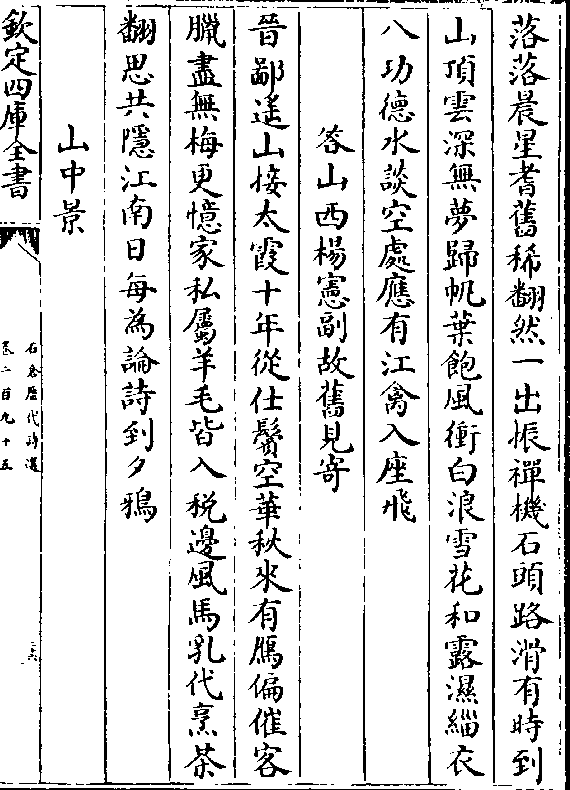 落落晨星耆舊稀翻然一出振禪機石頭路滑有時到
山頂雲深無夢歸帆葉飽風衝白浪雪花和露濕緇衣
八功德水談空處應有江禽入座飛
答山西楊憲副故舊見寄
晉鄙遙山接太霞十年從仕鬢空華秋來有鴈偏催客
臘盡無梅更憶家私屬羊毛皆入稅邊風馬乳代烹茶
翻思共隱江南日每為論詩到夕鴉
山中景
欽定四庫全書
石倉歷代詩選
卷二百九十五